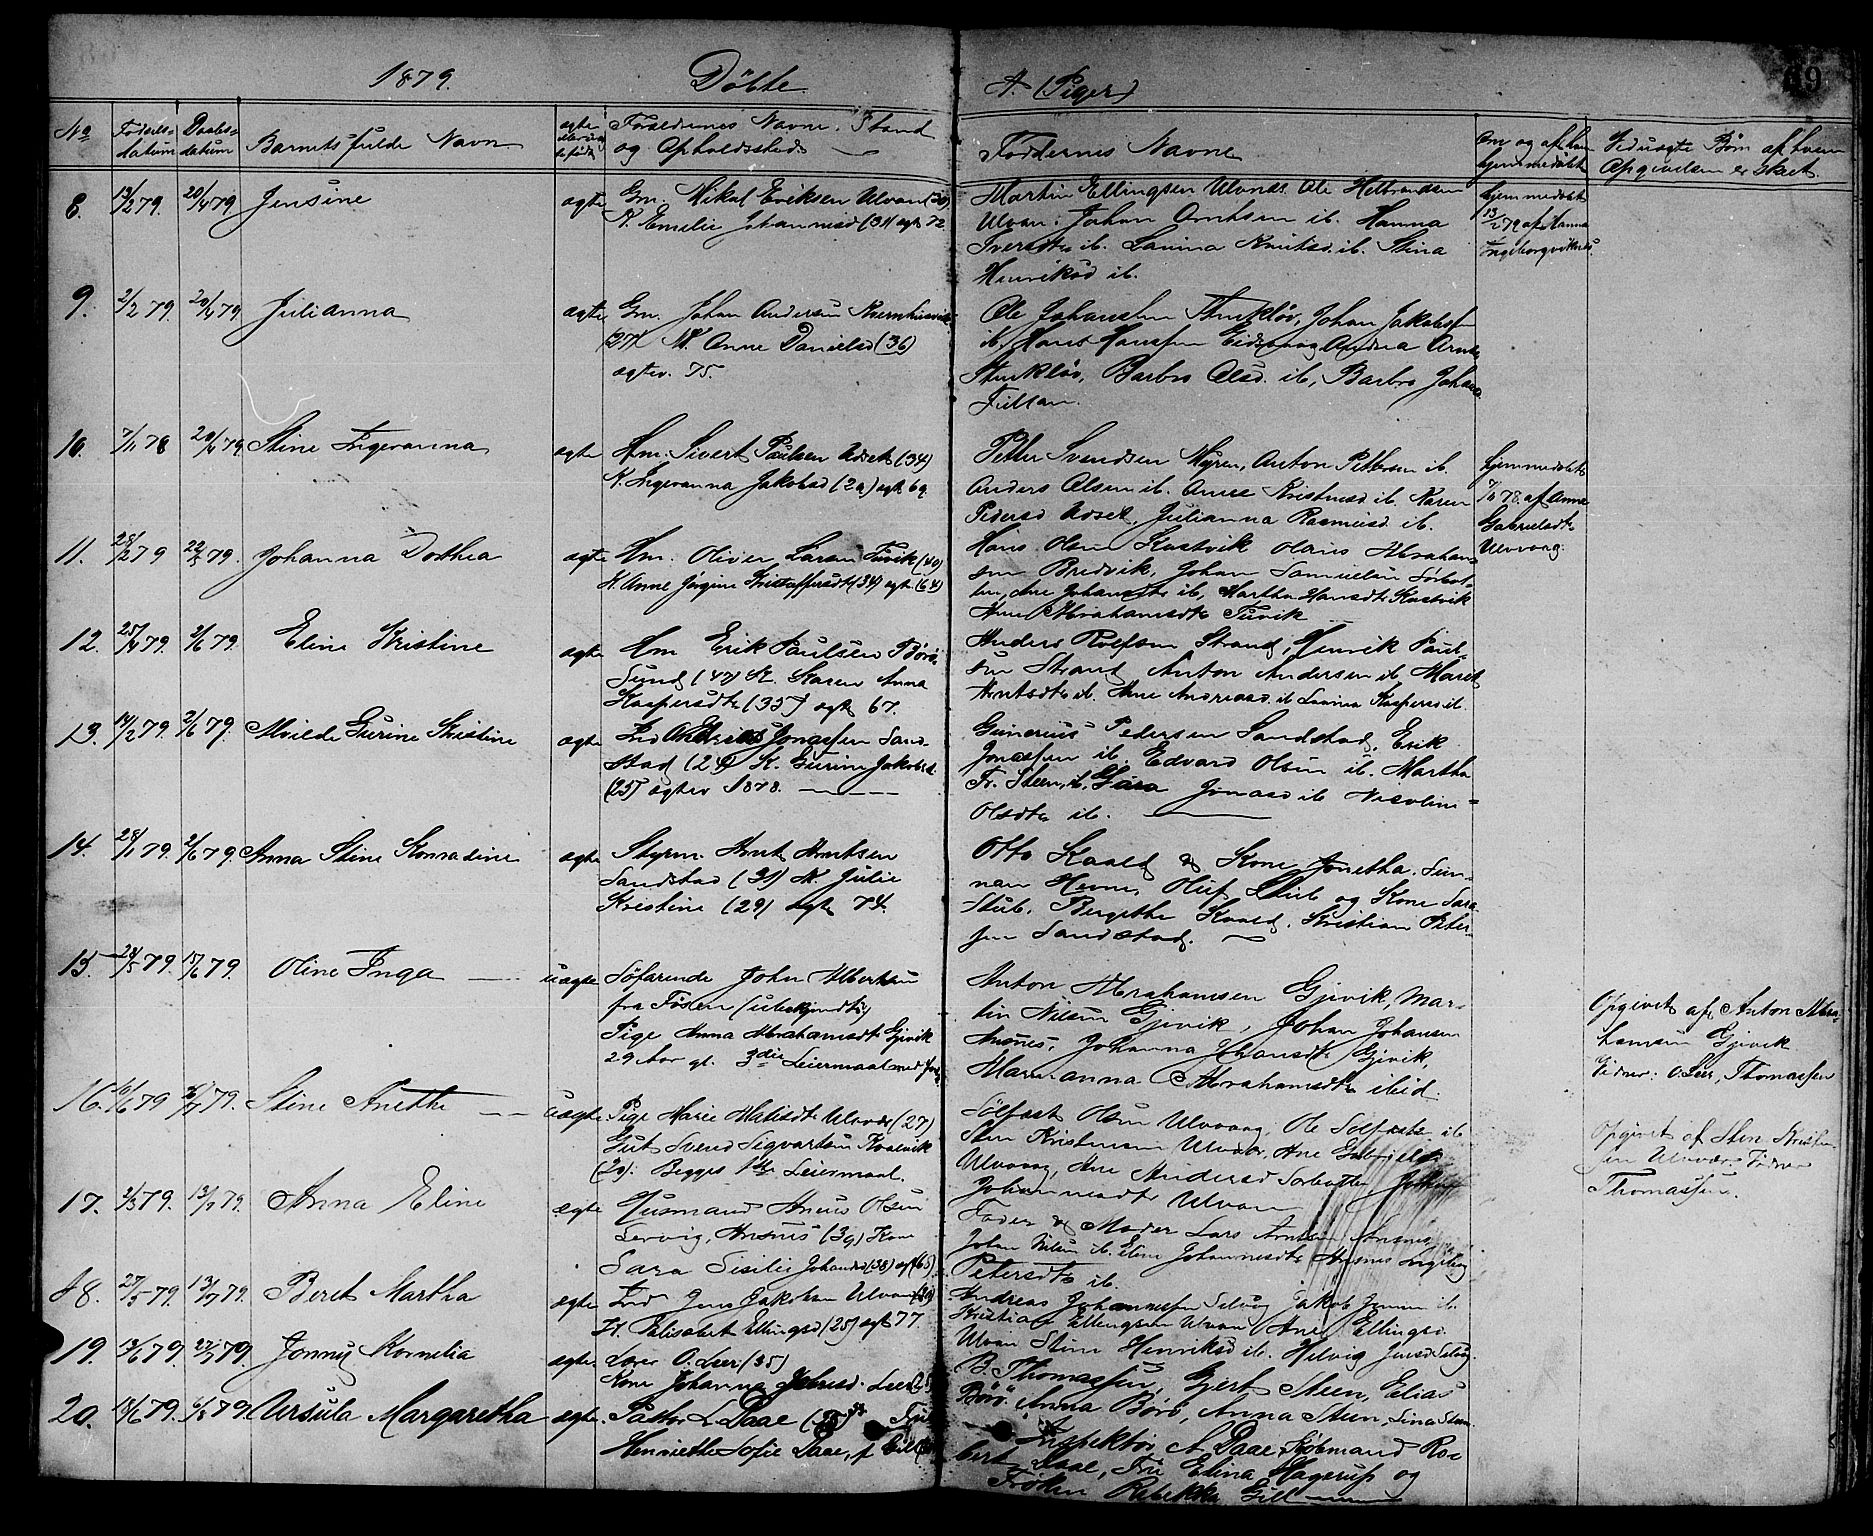 1879. Döbte A. (Piger) 69
No Fødsels-datum Daabs-datum Barnets fulde Navn ægte eller uægte født Forældrenes Navne, Stand og Opholdssted Faddernes Navne Om og af hvem hjemmedøbt Ved uægte Børn af hvem Opgivelsen er skeet
8. 13/2 79. 20/4 79 Jensine ægte Gm. Mikal Eriksen Ulvan
K. Emelie Johannesd (31) egt 72
Martin Ellingsen Ulvnæs. Ole Hellandsen
Ulvan. Johan Arntsen ib. Hanna
Iversdtr ib. Lavina Knutsd. ib. Stina
Henriksd ib.
hjemmedøbt
13/2 79 af Hanna
Ingeborgvik
9. 2/2 79. 20/4 79. Julianna ægte Gm. Johan Andersen
(37) K. Anne Danielsd (36)
egtev. 75.
Ole Johansen Stenkløv, Johan Jakobsen
ib. Hans Hansen Eidsvaag Andrea Arnts
Stenkløv, Barbro Olsd. ib, Barbro Johan
Fillan.
10. 7/11 78 20/4 79. Stine Ingevanna ægte Hm. Sivert Paulsen Udset (34)
K. Ingevanna Jakobsd (29) egt 69.
Petter Svendsen Myren, Anton Pettersen ib.
Anders Olsen ib. Anne Kristensd. ib. Karen
Pedersd Udset, Julianna Rasmusd. ib.
hjemmedøbt
7/11 78. af Anne
Gabrielsdtr
Ulvvaag.
11. 28/2 79 22/5 79. Johanna Dorthea ægte Hm. Olivier Larsen Tuvik (40)
K. Anne Jørgine Kristoffersdtr (34) egt (64)
Hans Olsen Kastvik Olaus Abraham-
sen Bredvik, Johan Samuelsen Sørbot-
ten, Ane Johansdtr ib, Martha Hansdtr Kastvik
Ane Abrahamsdtr Tuvik
12. 25/4 79. 2/6 79. Eline Kristine ægte Hm Erik Paulsen Børø-
Sund (47) K. Karen Anna
Kaspersdtr (35) egt 67.
Anders Rolfsen Strand, Henrik Paul-
sen Strand Anton Andersen ib. Marit
Arntsdtr ib. Ane Andreasd. ib Lavina Kaspersd. ib.
13. 14/2 79. 2/6 79. Alvilde Gurine Kristine ægte Ind Andreas Jonassen Sand-
stad (24) K. Gurine Jakobsd.
(25) egtev 1878.
Gunerius Pedersen Sandstad, Erik
Jonassen ib. Edvard Olsen ib. Martha
Fr. Steen, ib. Sara Jonasd ib Nicoline
Olsdtr ib.
14. 28/1 79. 2/6 79. Anna Stine Konradine ægte Styrm. Arnt Arntsen
Sandstad (31) K. Julie
Kristine (29) egt 74.
Otto Kaald & Kone Jonetha. Sun-
nan Hevne, Oluf Stub og Kone Sara
Stub. Bergithe Kaald, Kristian Peter-
sen Sandstad.
15. 24/5 79. 15/6 79. Oline Inga uægte Søfarende John Albertsen
fra Fosen (ubekjendt)
Pige Anna Abrahamsdtr Gjevik
29 Aar gl. 3die Leiermaal med
Anton Abrahamsen Gjevik, Mar-
tin Nilsen Gjevik, Johan Johansen
Ansnes, Johanna Johansdtr Gjevik,
Marianna Abrahamsdtr ibid.
Opgivet af Anton Abra-
hamsen Gjevik
Vidner: O. Leer, Thomassen
16. 10/6 79 79. Stine Anette uægte Pige Marie Ulvvær (27)
Gut Svend Sigvartsen Kvalvik
(20). Begges 1ste Leiermaal.
Sølfast Olsen Ulvvaag, Ole Solfast ib
Sten Kristensen Ulvvær, Ane
Ulvvaag, Ane Andersd Sørbotten
Johannesdtr Ulvan
Opgivet af Sten Kristen
sen Ulvvær. Vidner
Thomassen.
17. 2/3 79. 13/7 79. Anna Eline ægte Husmand Olsen
Lervig, Ansnes (39) Kone
Sara Sisilie Johansd (38) egt (65)
Fader & Moder Lars Arntsen Ansnes
Johan Nilsen ib. Eline Johannesdtr Ansnes Ingeborg
Petersdtr ib.
18. 27/5 79. 13/7 79. Beret Martha ægte Ind Jens Jakobsen Ulvan
K. Elisabet Ellingsd (25) egt 77.
Andreas Johannessen Selvåg Jakob Jensen ib.
Kristian Ellingsen Ulvan Ane Ellingsd.
Ulvan Stine Henriksd ib. Helvig Jensd Selvåg.
19. 13/6 79. 27/7 79. Jonny Kornelia ægte. Lærer O. Leer (35)
Kone Johanna Leer
B. Thomassen, Gjert Steen, Elias
Börö Anna Börö, Anna Steen, Lina Steen
20. 14/6 79. 6/8 79 Ursula Margaretha ægte. Pastor L. Daae
Henriette Sofie Daae, f. Gill
Inspektør A Daae, Kjøbmand Ro-
bert Daae, Fru Elina Hagerup og
Frøken Rebekka Gill